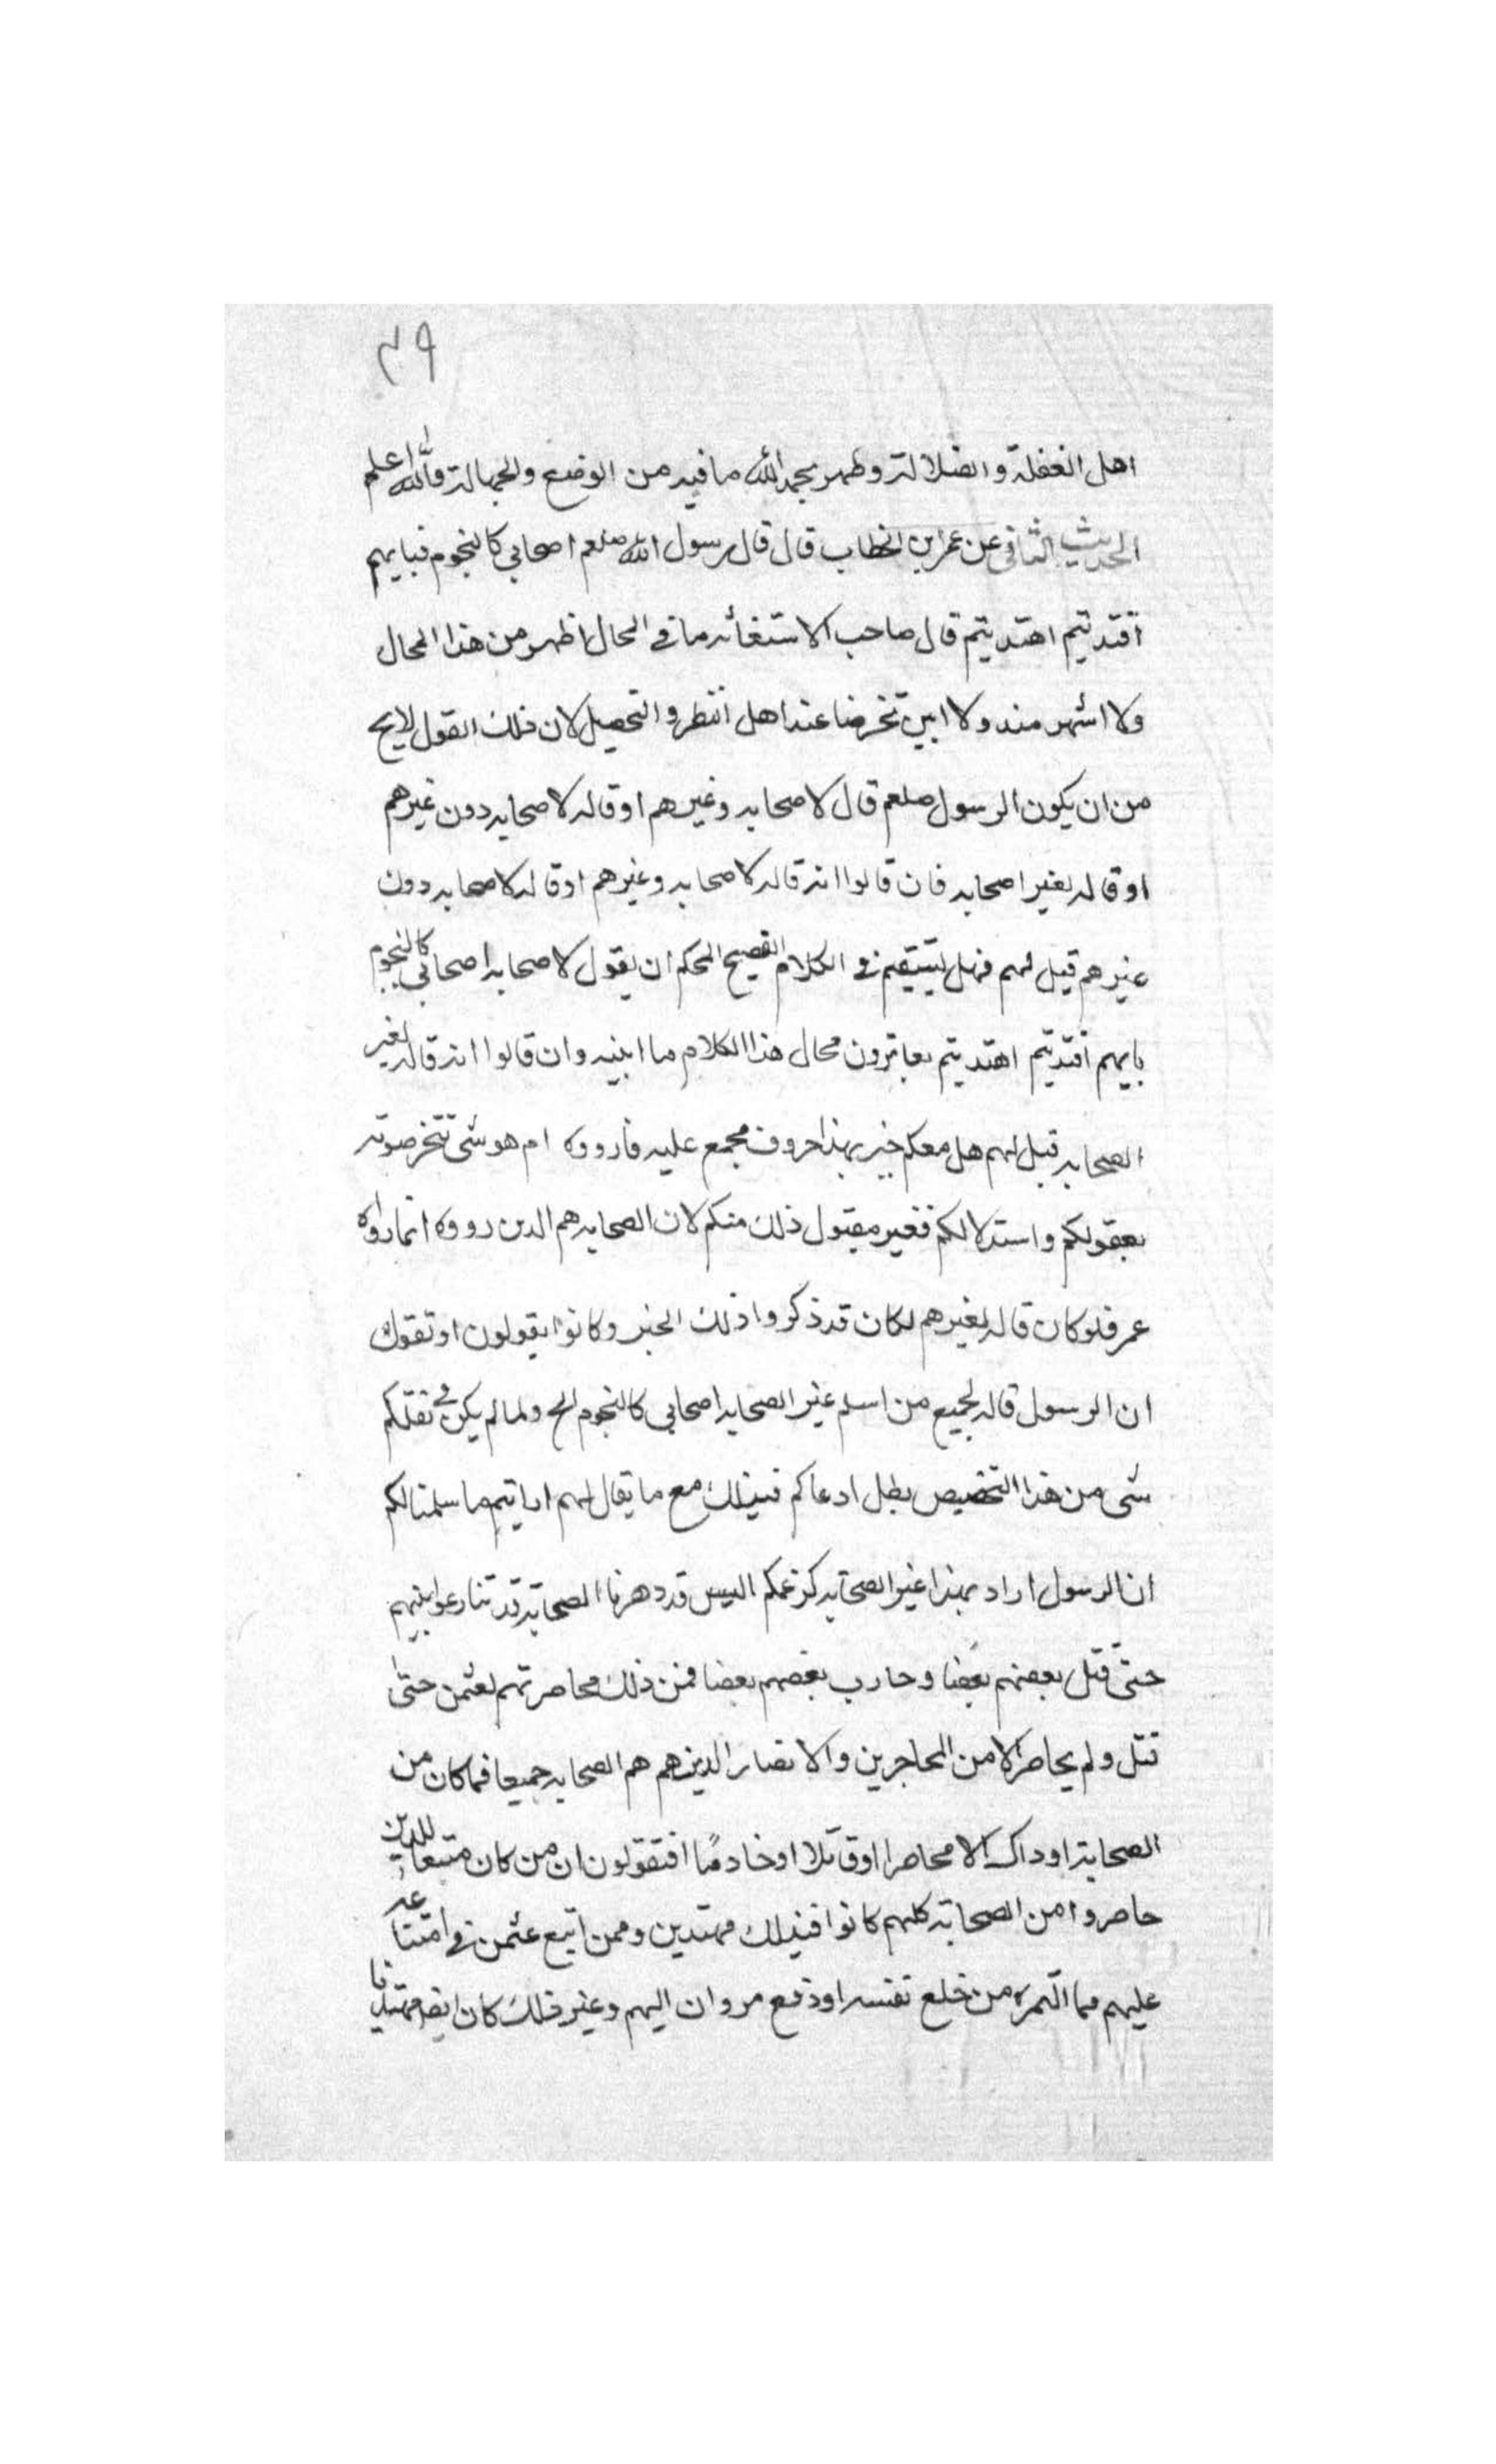 ٣٩
اهل الغفلة والضلالة وظهر بحمد الله ما فيه من الوضع والجهالة والله اعلم
الحديث الثانى عن عمر ابن الخطاب قال قال رسول الله صلعم اصحابي كالنجوم فبايهم
اقتديتم اهتديتم قال صاحب الاستغاثه ما في المحال اظهر من هذا المحال
ولا اشهر منه ولا ابين تخرضا عند اهل النظر والتحصيل لان ذلك القول لا يخ
من ان يكون الرسول صلعم قال لاصحابه وغيرهم او قاله لاصحابه دون غيرهم
او قاله لغير اصحابه فان قالوا انه قاله لاصحابه وغيرهم او قاله لاصحابه دون
غيرهم قيل لهم فهل يستقيم في الكلام الفصيح المحكم ان يقول لاصحابه اصحابي كالنجوم
بايهم اقتديتم اهتديتم محال هذا الكلام ما ابينه وان قالوا انه قاله لغير
الصحابه قيل لهم هل معكم خبر بهذا معروف مجمع عليه فارووه ام هو شى تتخرصوته
بعقولكم واستدلالكم فغير مقبول ذلك منكم لان الصحابه هم الدين رووه انما رواه
عمر فلو كان قاله لغيرهم لكان قد ذكروا ذلك الخبر وكانوا يقولون او تقول
ان الرسول قاله لجميع من اسلم غير الصحابه اصحابي كالنجوم الخ ولما لم يكن في نقلكم
شى من هذا التخصيص بطل ادعاكم فيذلك مع ما يقال لهم ارايتم ما سلمنا لكم
ان الرسول اراد بهذا غير الصحابه كزعمكم اليس قد دهرنا الصحابة قد تنازعوا بينهم
حتى قتل بعضهم بعضا وحارب بعضهم بعضا فمن ذلك محاصرتهم لعثمن حتى
قتل ولم يحاصر الا من المحاجرين والانصار الدين هم هم الصحابه جميعا فما كان من
الصحابة اوداك الا محاصرا اوقاتلا اوخادما افتقولون ان من كان متبعا للدين
حاصروا من الصحابة كلهم كانوا فيذلك مهتدين وممن اتبع عثمن في امتناعه
عليهم مما التمره من خلع نفسه او دفع مروان اليهم وغير ذلك كان ايضا مهتديا